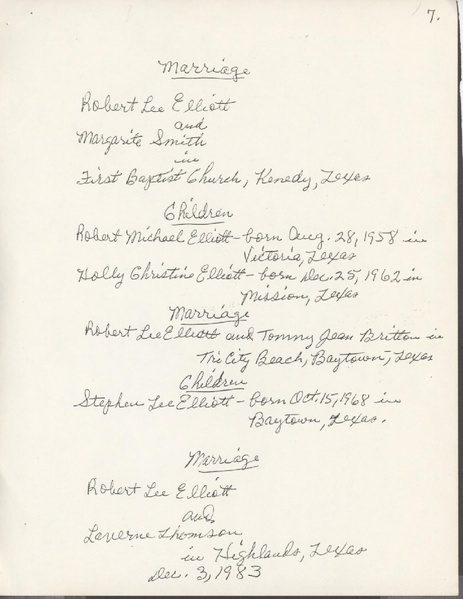 7.
Marriage
Robert Lee Elliott
and
Margarite Smith
in
First Baptist Church, Kenedy, Texas
Children
Robert Michael Elliott - born Aug. 28, 1958 in
Victoria, Texas
Holly Christine Elliott - born Dec. 25, 1962 in
Mission, Texas
Marriage
Robert Lee Elliott and Tommy Jean Britton in
Tri City Beach, Baytown, Texas
Children
Stephen Lee Elliott - born Oct. 15, 1968 in
Baytown, Texas.
Marriage
Robert Lee Elliott
and
Laverne Thomson
in Highlands, Texas
Dec. 3, 1983